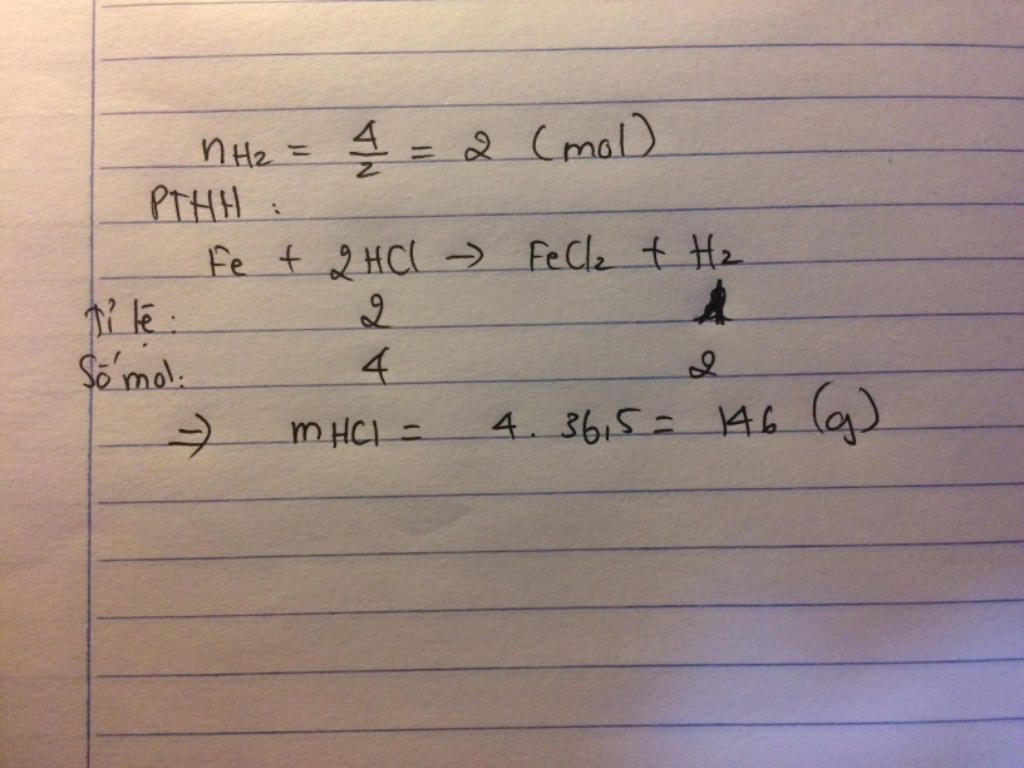 nH2 = 4/2 = 2 (mol)
PTHH :
Fe + 2HCl → FeCl2 + H2
Tỉ lệ : 2 1
Số mol: 4 2
⇒ mHCl = 4. 36,5 = 146 (g)